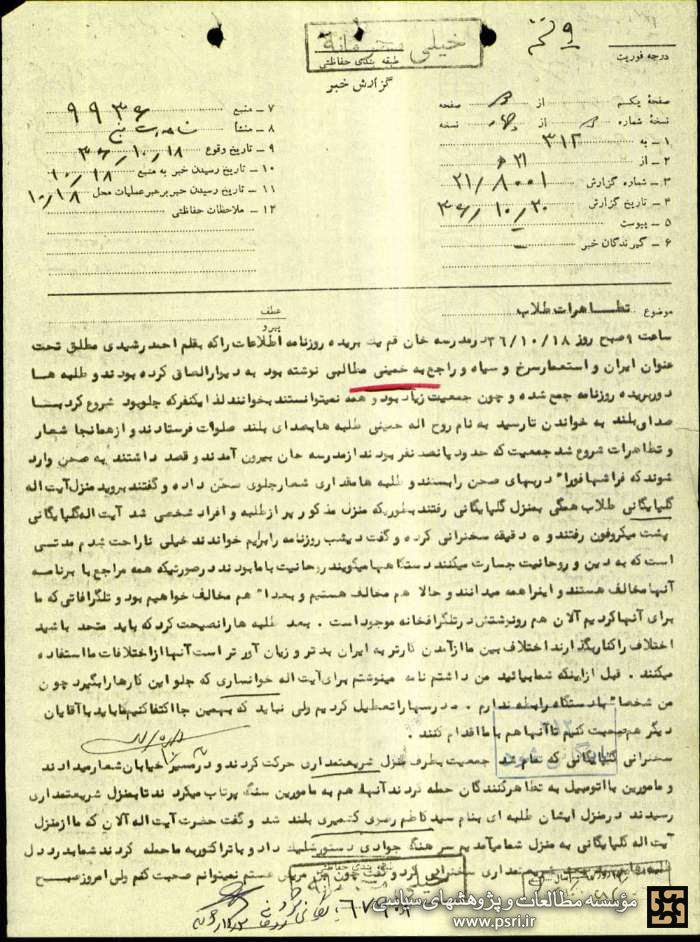 خیلی محرمانه
طبقه بندی حفاظتی
گزارش خبر
درجه فوریت
صفحه یکم از صفحه
نسخه شماره از چهار نسخه
۱ – به ۳۱۲
۲ – از ۲۱ ه
۳ – شماره گزارش ۲۱/۸۰۰۱
۴ – تاریخ گزارش ۳۶/۱۰/۲۰
۵ – پیوست
۶ – گیرندگان خبر
۷ – منبع ۹۹۳۶
۸ – منشأ
۹ – تاریخ وقوع ۳۶/۱۰/۱۸
۱۰ – تاریخ رسیدن خبر به منبع ۱۰/۱۸
۱۱ – تاریخ رسیدن خبر برهبر عملیات محل ۱۰/۱۸
۱۲ – ملاحظات حفاظتی
موضوع : تظاهرات طلاب
عطف
پیرو
ساعت ۹ صبح روز ۳۶/۱۰/۱۸ در مدرسه خان قم یک بریده روزنامه اطلاعات را که بقلم احمد رشیدی مطلق تحت
عنوان ایران و استعمار سرخ و سیاه و راجع به خمینی مطالبی نوشته بود به دیوار الصاق کرده بودند و طلبه ها
دور بریده روزنامه جمع شده و چون جمعیت زیاد بود و همه نمیتوانستند بخوانند لذا یکنفر که جلو بود شروع کرد با
صدای بلند به خواندن تا رسید به نام روح اله خمینی طلبه ها بصدای بلند صلوات فرستادند و از همانجا شعار
و تظاهرات شروع شد جمعیت که حدود پانصد نفر بودند از مدرسه خان بیرون آمدند و قصد داشتند به صحن وارد
شوند که فراشها فورا" دربهای صحن را بستند و طلبه ها مقداری شعار جلوی صحن داده و گفتند بروید منزل آیت اله
گلپایگانی طلاب همگی بمنزل گلپایگانی رفتند بطوریکه منزل مذکور پر از طلبه و افراد شخصی شد آیت اله گلپایگانی
پشت میکروفون رفتند و ۵ دقیقه سخنرانی کرده و گفت دیشب روزنامه را برایم خواندند خیلی ناراحت شدم مدتی
است که به دین و روحانیت جسارت میکنند دستگاهها میگویند روحانیت با ما بودند درصورتیکه همه مراجع با برنامه
آنها مخالف هستند و اینرا همه میدانند و حالا هم مخالف هستیم و بعدا" هم مخالف خواهیم بود و تلگرافاتی که ما
برای آنها کردیم آلان هم رونوشتش در تلگرافخانه موجود است . بعد طلبه ها را نصیحت کرد که باید متحد باشید
اختلاف را کنار بگذارند اختلاف بین ما از آمدن کارتر به ایران بدتر و زیان آورتر است آنها از اختلافات ما استفاده
میکنند . قبل از اینکه شما بیائید من داشتم نامه مینوشتم برای آیت اله خوانساری که جلو این کارها را بگیرد چون
من شخصا" با دستگاه رابطه ندارم . مدرسها را تعطیل کردیم ولی نباید که بهمین جا اکتفا کنیم ما باید با آقایان
دیگر هم صحبت کنیم تا آنها هم با ما اقدام کنند .
سخنرانی گلپایگانی که تمام شد جمعیت بطرف منزل شریعتمداری حرکت کردند و در مسیر خیابان شعار میدادند
و مامورین با اتومبیل به تظاهرکنندگان حمله کردند آنها هم به مامورین سنگ پرتاب میکردند تا بمنزل شریعتمداری
رسیدند در منزل ایشان طلبه ای بنام سید کاظم کشمیری بلند شد و گفت حضرت آیت اله آلان که ما از منزل
آیت اله گلپایگانی به منزل شما میآمدیم سرهنگ جوادی دستور شلیک داد و با تراکتور به ما حمله کردند شما بدرد دل
شریعتمداری سخنرانی کرد و گفت چون من مریض هستم نمیتوانم صحبت کنم ولی امروز صبح
طبقه بندی حفاظتی
مؤسسه مطالعات و پژوهشهای سیاسی
www.psri.ir